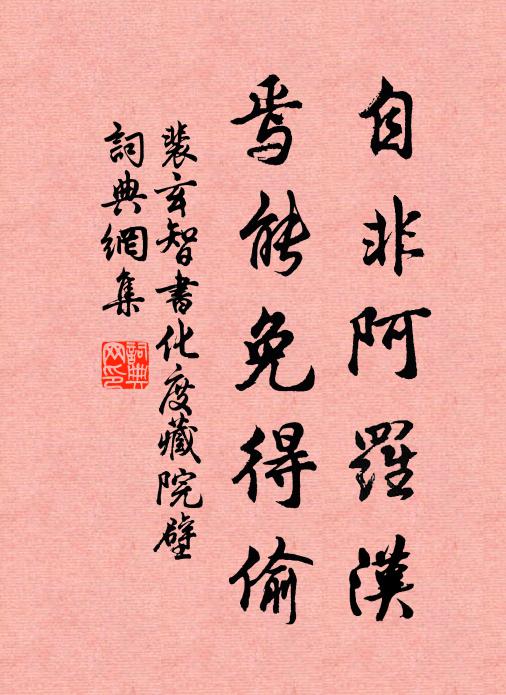 自非阿羅漢
焉能免得偷
裴玄智書化度藏院壁
詞典網集
詞典網印